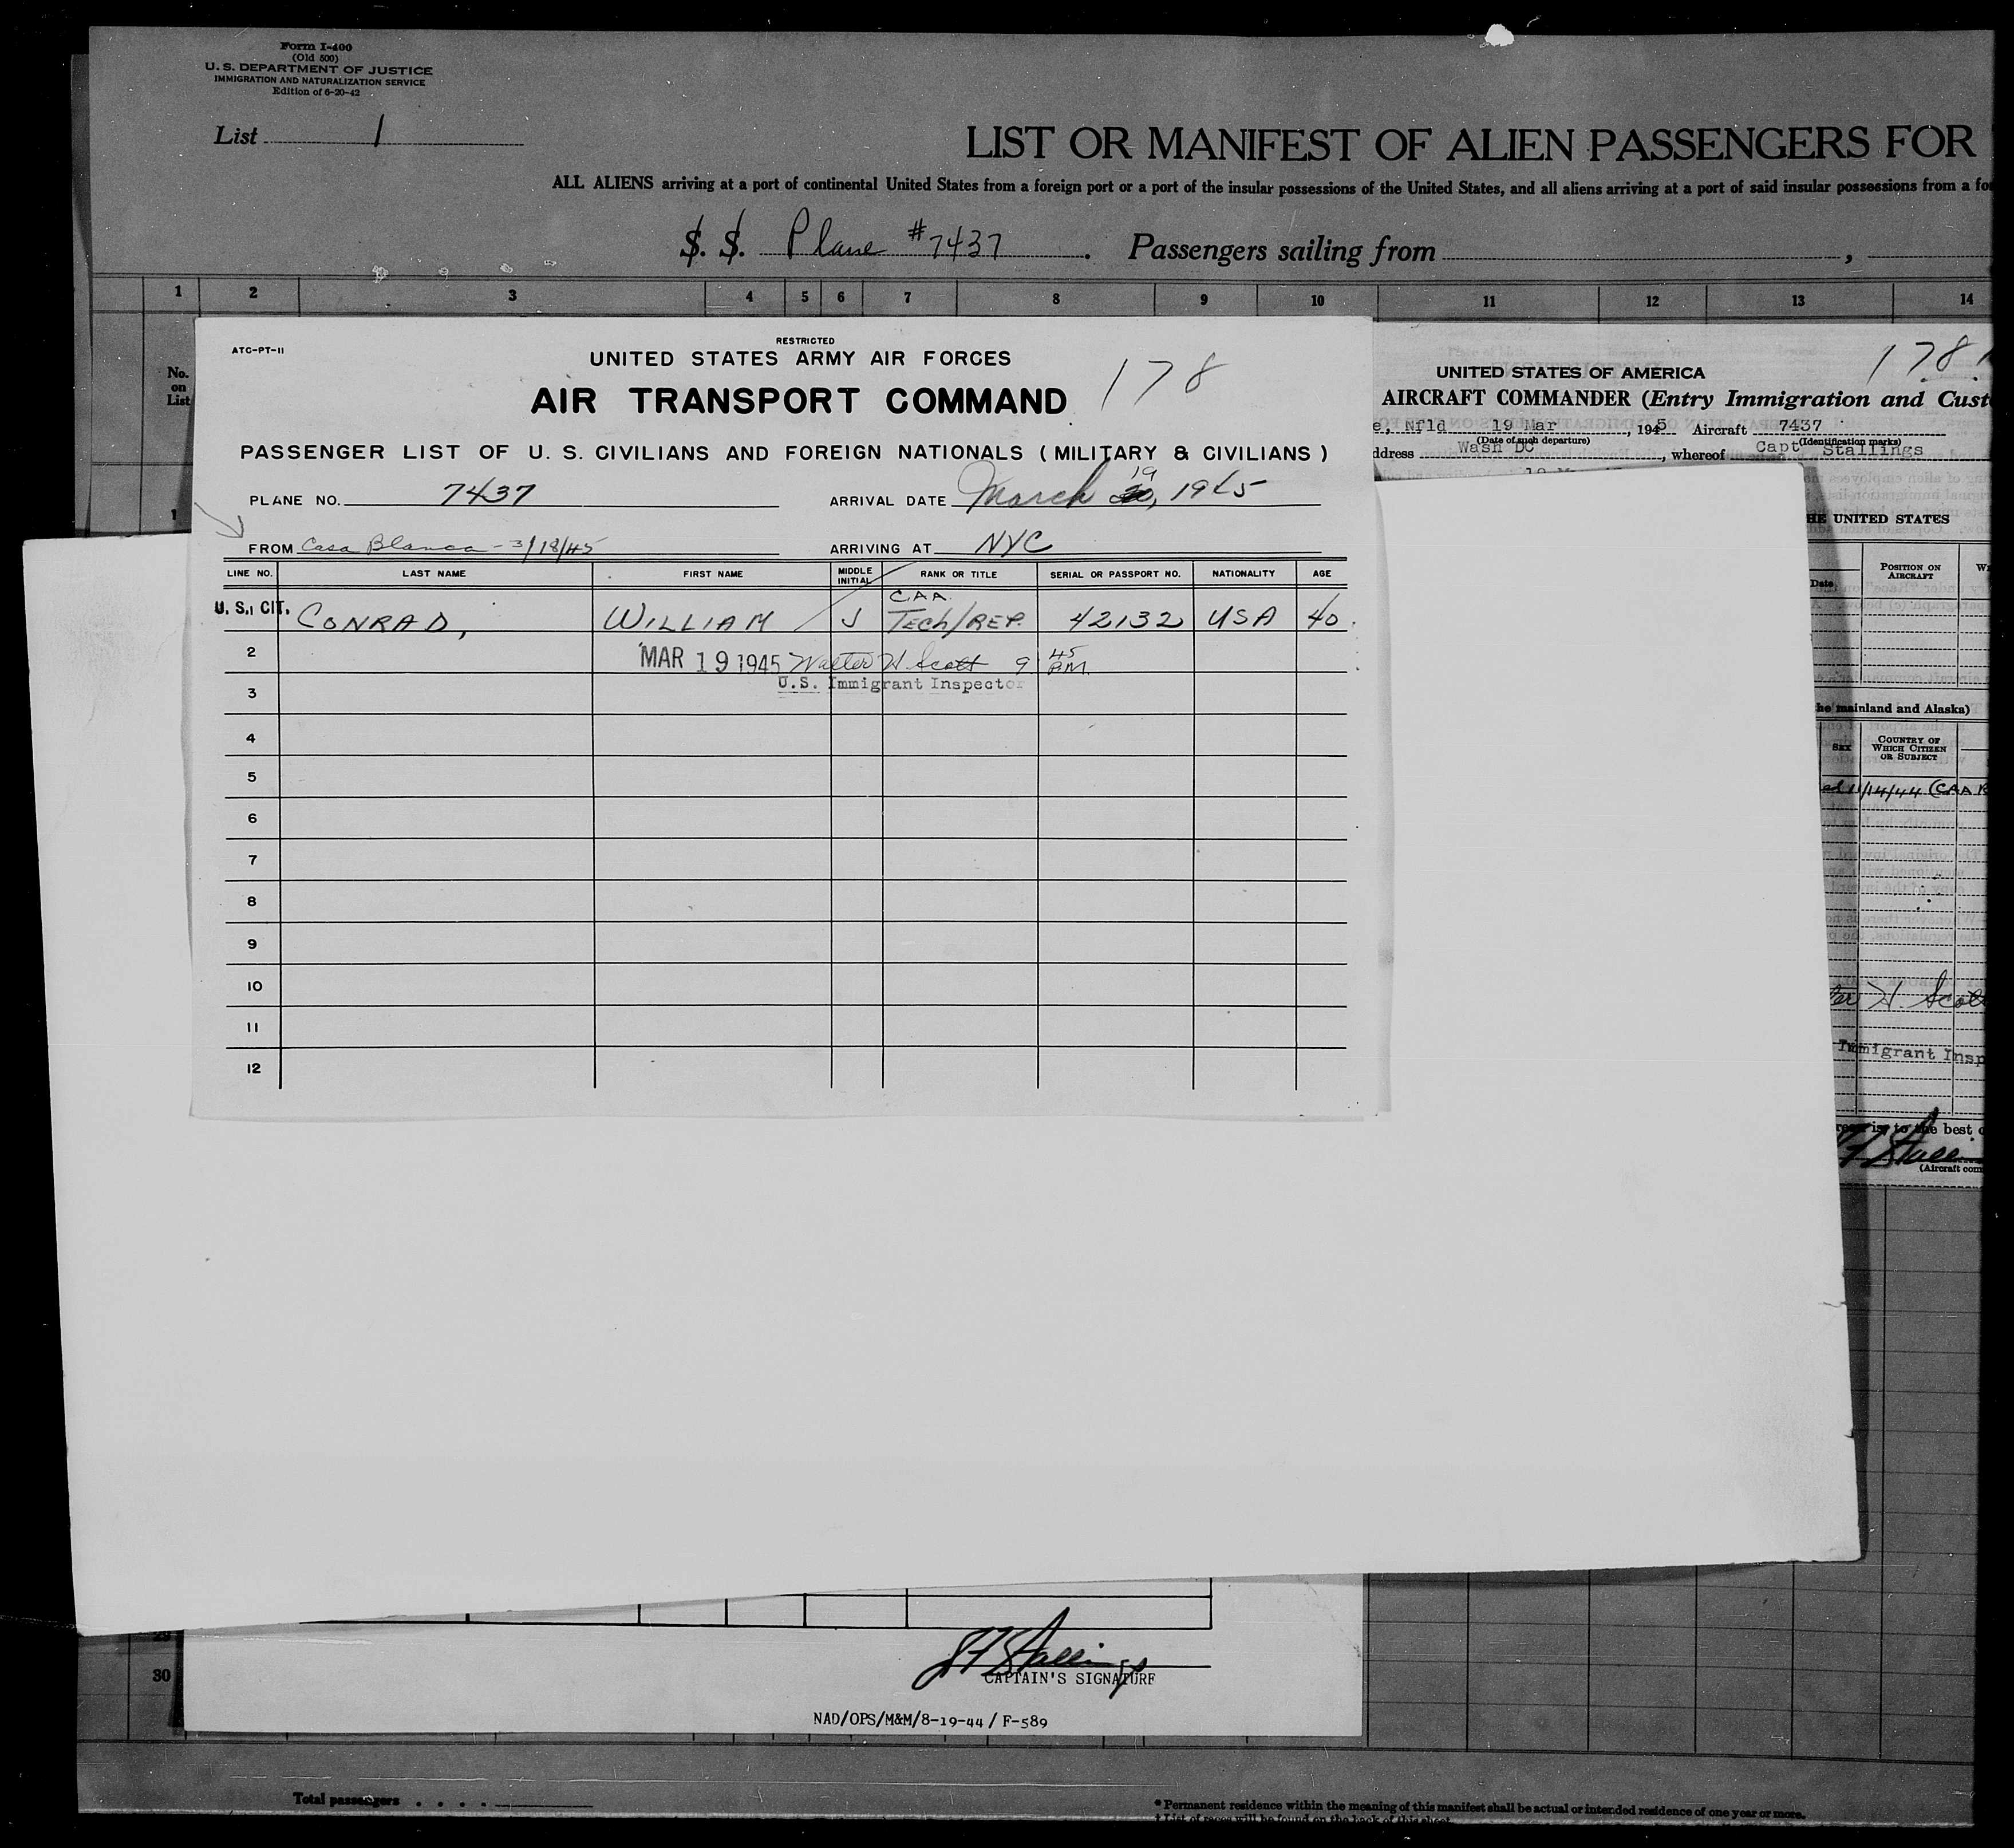 Form I-400
(Old 500)
U. S. DEPARTMENT OF JUSTICE
IMMIGRATION AND NATURALIZATION SERVICE
Edition of 6-20-42
List 1
LIST OR MANIFEST OF ALIEN PASSENGERS FOR
ALL ALIENS arriving at a port of continental United States from a foreign port or a port of the insular possessions of the United States, and all aliens arriving at a port of said insular possessions from a fo
S. S. Plane #7437. Passengers sailing from ,
1 2 3 4 5 6 7 8 9 10 11 12 13 14
No. on List
1
ATC-PT-11
RESTRICTED
UNITED STATES ARMY AIR FORCES
AIR TRANSPORT COMMAND
178
PASSENGER LIST OF U. S. CIVILIANS AND FOREIGN NATIONALS ( MILITARY & CIVILIANS )
PLANE NO. 7437 ARRIVAL DATE March 19, 1945
FROM Casa Blanca - 3/18/45 ARRIVING AT NYC
LINE NO. LAST NAME FIRST NAME MIDDLE INITIAL RANK OR TITLE SERIAL OR PASSPORT NO. NATIONALITY AGE
U. S. CIT. CONRAD, WILLIAM J CAA TECH/REP. 42132 USA 40
2 MAR 19 1945 Walter H Scott 9 45 P.M.
3 U.S. Immigrant Inspector
4
5
6
7
8
9
10
11
12
178
UNITED STATES OF AMERICA
AIRCRAFT COMMANDER (Entry Immigration and Cust
e, Nfld 19 Mar, 1945 Aircraft 7437
(Date of such departure) (Identification marks)
ddress Wash DC, whereof Capt Stallings
HE UNITED STATES
Date POSITION ON AIRCRAFT W
he mainland and Alaska)
SEX COUNTRY OF WHICH CITIZEN OR SUBJECT
11/14/44 (CAA
H. Scott
Immigrant Insp
is to the best o
(Aircraft com
29
30
J F Stallings
CAPTAIN'S SIGNATURE
NAD/OPS/M&M/8-19-44 / F-589
Total passengers . . . .
* Permanent residence within the meaning of this manifest shall be actual or intended residence of one year or more.
† List of races will be found on the back of this sheet.